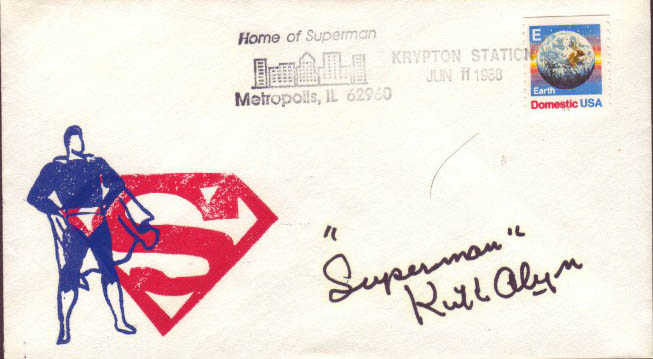 Home of Superman
KRYPTON STATION
JUN 11 1988
Metropolis, IL 62960
E
Earth
Domestic USA
S
"Superman"
Kirk Alyn